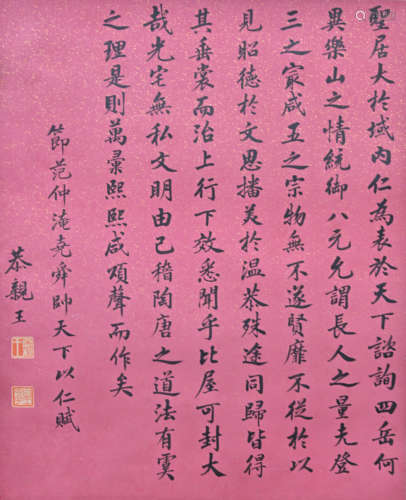 聖居大於域內仁為表於天下諮詢四岳何
異樂山之情統御八元允謂長人之量夫登
三之冣咸五之宗物無不遂賢靡不從於以
見昭德於文思播美於溫恭殊途同歸皆得
其垂裳而治上行下效悉聞乎比屋可封大
哉光宅無私文明由己稽陶唐之道法有虞
之理是則萬彙熙熙咸頌聲而作矣
節范仲淹堯舜帥天下以仁賦
恭親王